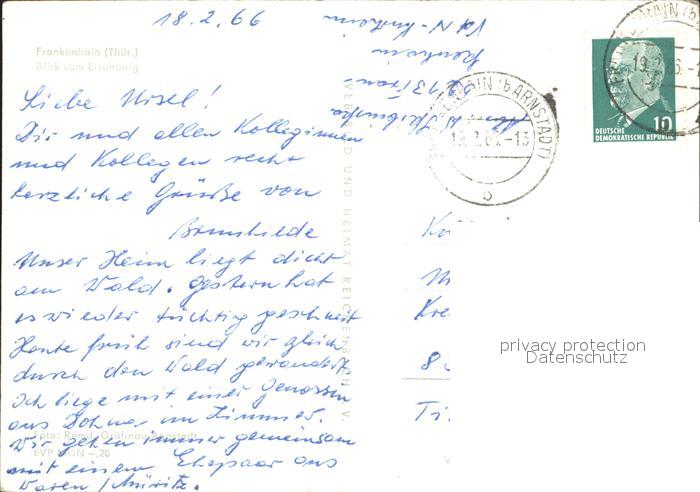 18.2.66
Frankenhain (Thür.)
Blick vom Eisenberg
Liebe Ursel!
Dir und allen Kolleginnen
und Kollegen recht
herzliche Grüße von
Brunhilde
Unser Heim liegt dicht
am Wald. Gestern hat
es wieder tüchtig geschneit
Heute früh sind wir gleich
durch den Wald gewandert.
Ich liege mit einer Genossin
aus Dohna im Zimmer.
Wir gehen immer gemeinsam
mit einem Ehepaar aus
Waren/Müritz.
Foto:
EVP MDN -,20
VERLAG UND HEIMAT REICHENBACH I. V.
ARNSTADT)
b
DEUTSCHE
DEMOKRATISCHE REPUBLIK
10
Kö
M
Kre
8
Ti
privacy protection
Datenschutz